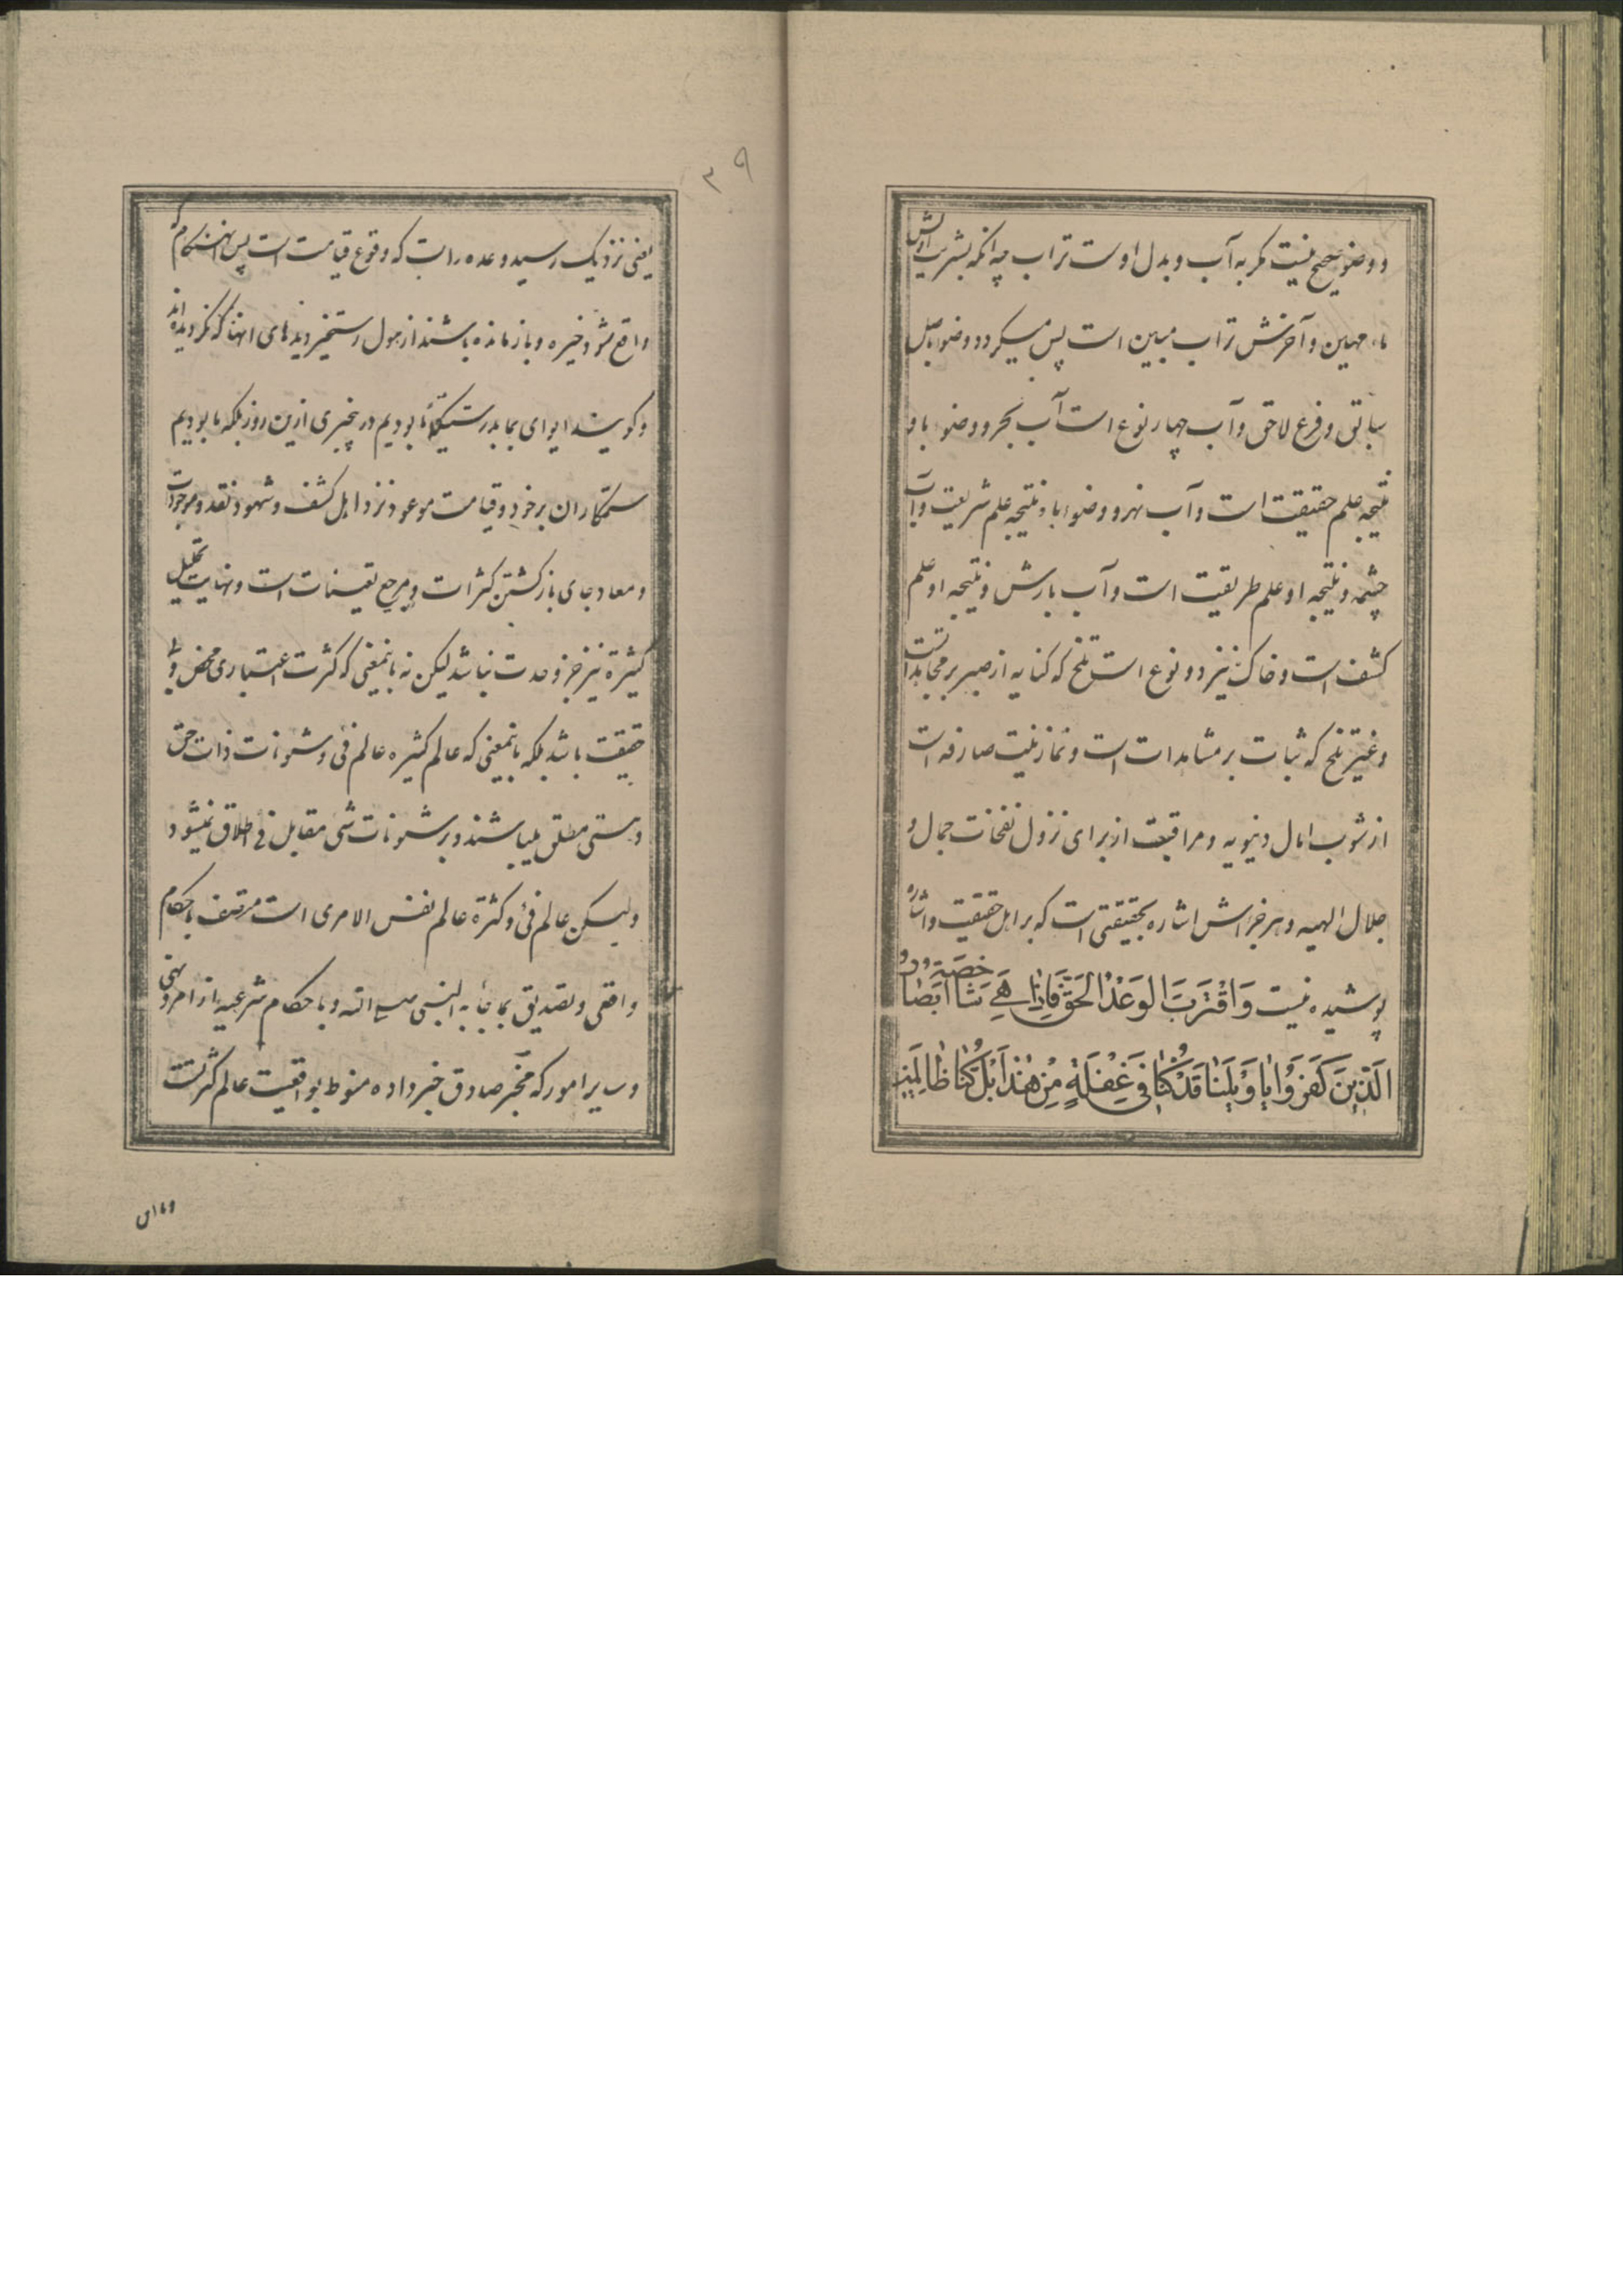 و وضو صحیح نیست مکر به آب و بدل اوست تراب چه انکه بشریت اولش
ماء مهین و آخرش تراب مبین است پس میکردد وضو باصل
سابق و فرع لاحق و آب چهار نوع است آب بحر و وضوء باو
نتیجه علم حقیقت است و آب نهر و وضوء باو نتیجه علم شریعت و آب
چشمه و نتیجه او علم طریقت است و آب بارش و نتیجه او علم
کشف است و خاک نیز دو نوع است تلخ که کنایه از صبر بر مجاهداتست
و غیر تلخ که ثبات بر مشاهدات است و نماز نیت صارفه است
از شوب امال دنیویه و مراقبت از برای نزول نفخات جمال و
جلال الهیه و هر جزءاش اشاره بحقیقتی است که بر اهل حقیقت و اشاره
پوشیده نیست وَاقْتَرَبَ الوَعْدُ الحَقّ فَاِذا هِيَ شاخصَة اَبْصَارُ
الَّذِينَ كَفَرُوا يا وَيْلَنا قَدْ كُنّا في غَفْلَةٍ مِنْ هذا بَلْ كُنّا ظالِمِينَ
۳۹
یعنی نزدیک رسید وعده راست که وقوع قیامت است پس انهنکام که
واقع شود خیره و باز مانده باشند از هول رستخیز دیدهای انها که نکرویده اند
و کویند ایوای بما بدرستیکه ما بودیم در بیخبری ازین روز بلکه ما بودیم
ستمکاران بر خود و قیامت موعود نزد اهل کشف و شهود نقد و موجودست
و معاد جای باز کشتن کثرات و مرجع تعینات است و نهایت تحلیل
کثیرة نیز جز وحدت نباشد لیکن نه بانمعنی که کثرت اعتباری محض و بی
حقیقت باشد بلکه بانمعنی که عالم کثیره عالم فیء و شئونات ذات حق
و هستی مطلق میباشند و بر شئونات شیء مقابل فیء اطلاق نمیشود
ولیکن عالم فیء و کثرة عالم نفس الامری است مرتصف باحکام
واقعی و تصدیق بما جاء به النبی صلی الله و باحکام شرعیه از امر و نهی
و سایر امور که مخبر صادق خبر داده منوط بواقعیت عالم کثرتست